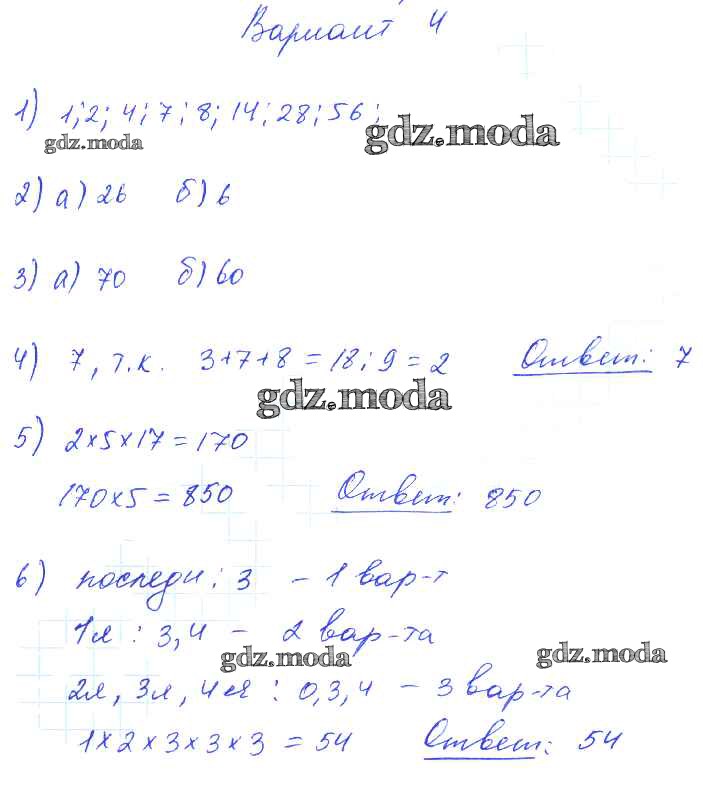 Вариант 4
1) 1; 2; 4; 7; 8; 14; 28; 56;
gdz.moda
gdz.moda
2) а) 26 б) 6
3) а) 70 б) 60
4) 7, т.к. 3+7+8 = 18:9 = 2 Ответ: 7
gdz.moda
5) 2×5×17 = 170
170×5 = 850 Ответ: 850
6) последн: 3 – 1 вар-т
1я : 3,4 – 2 вар-та
gdz.moda
gdz.moda
2я, 3я, 4ая : 0,3,4 – 3 вар-та
1×2×3×3×3 = 54 Ответ: 54